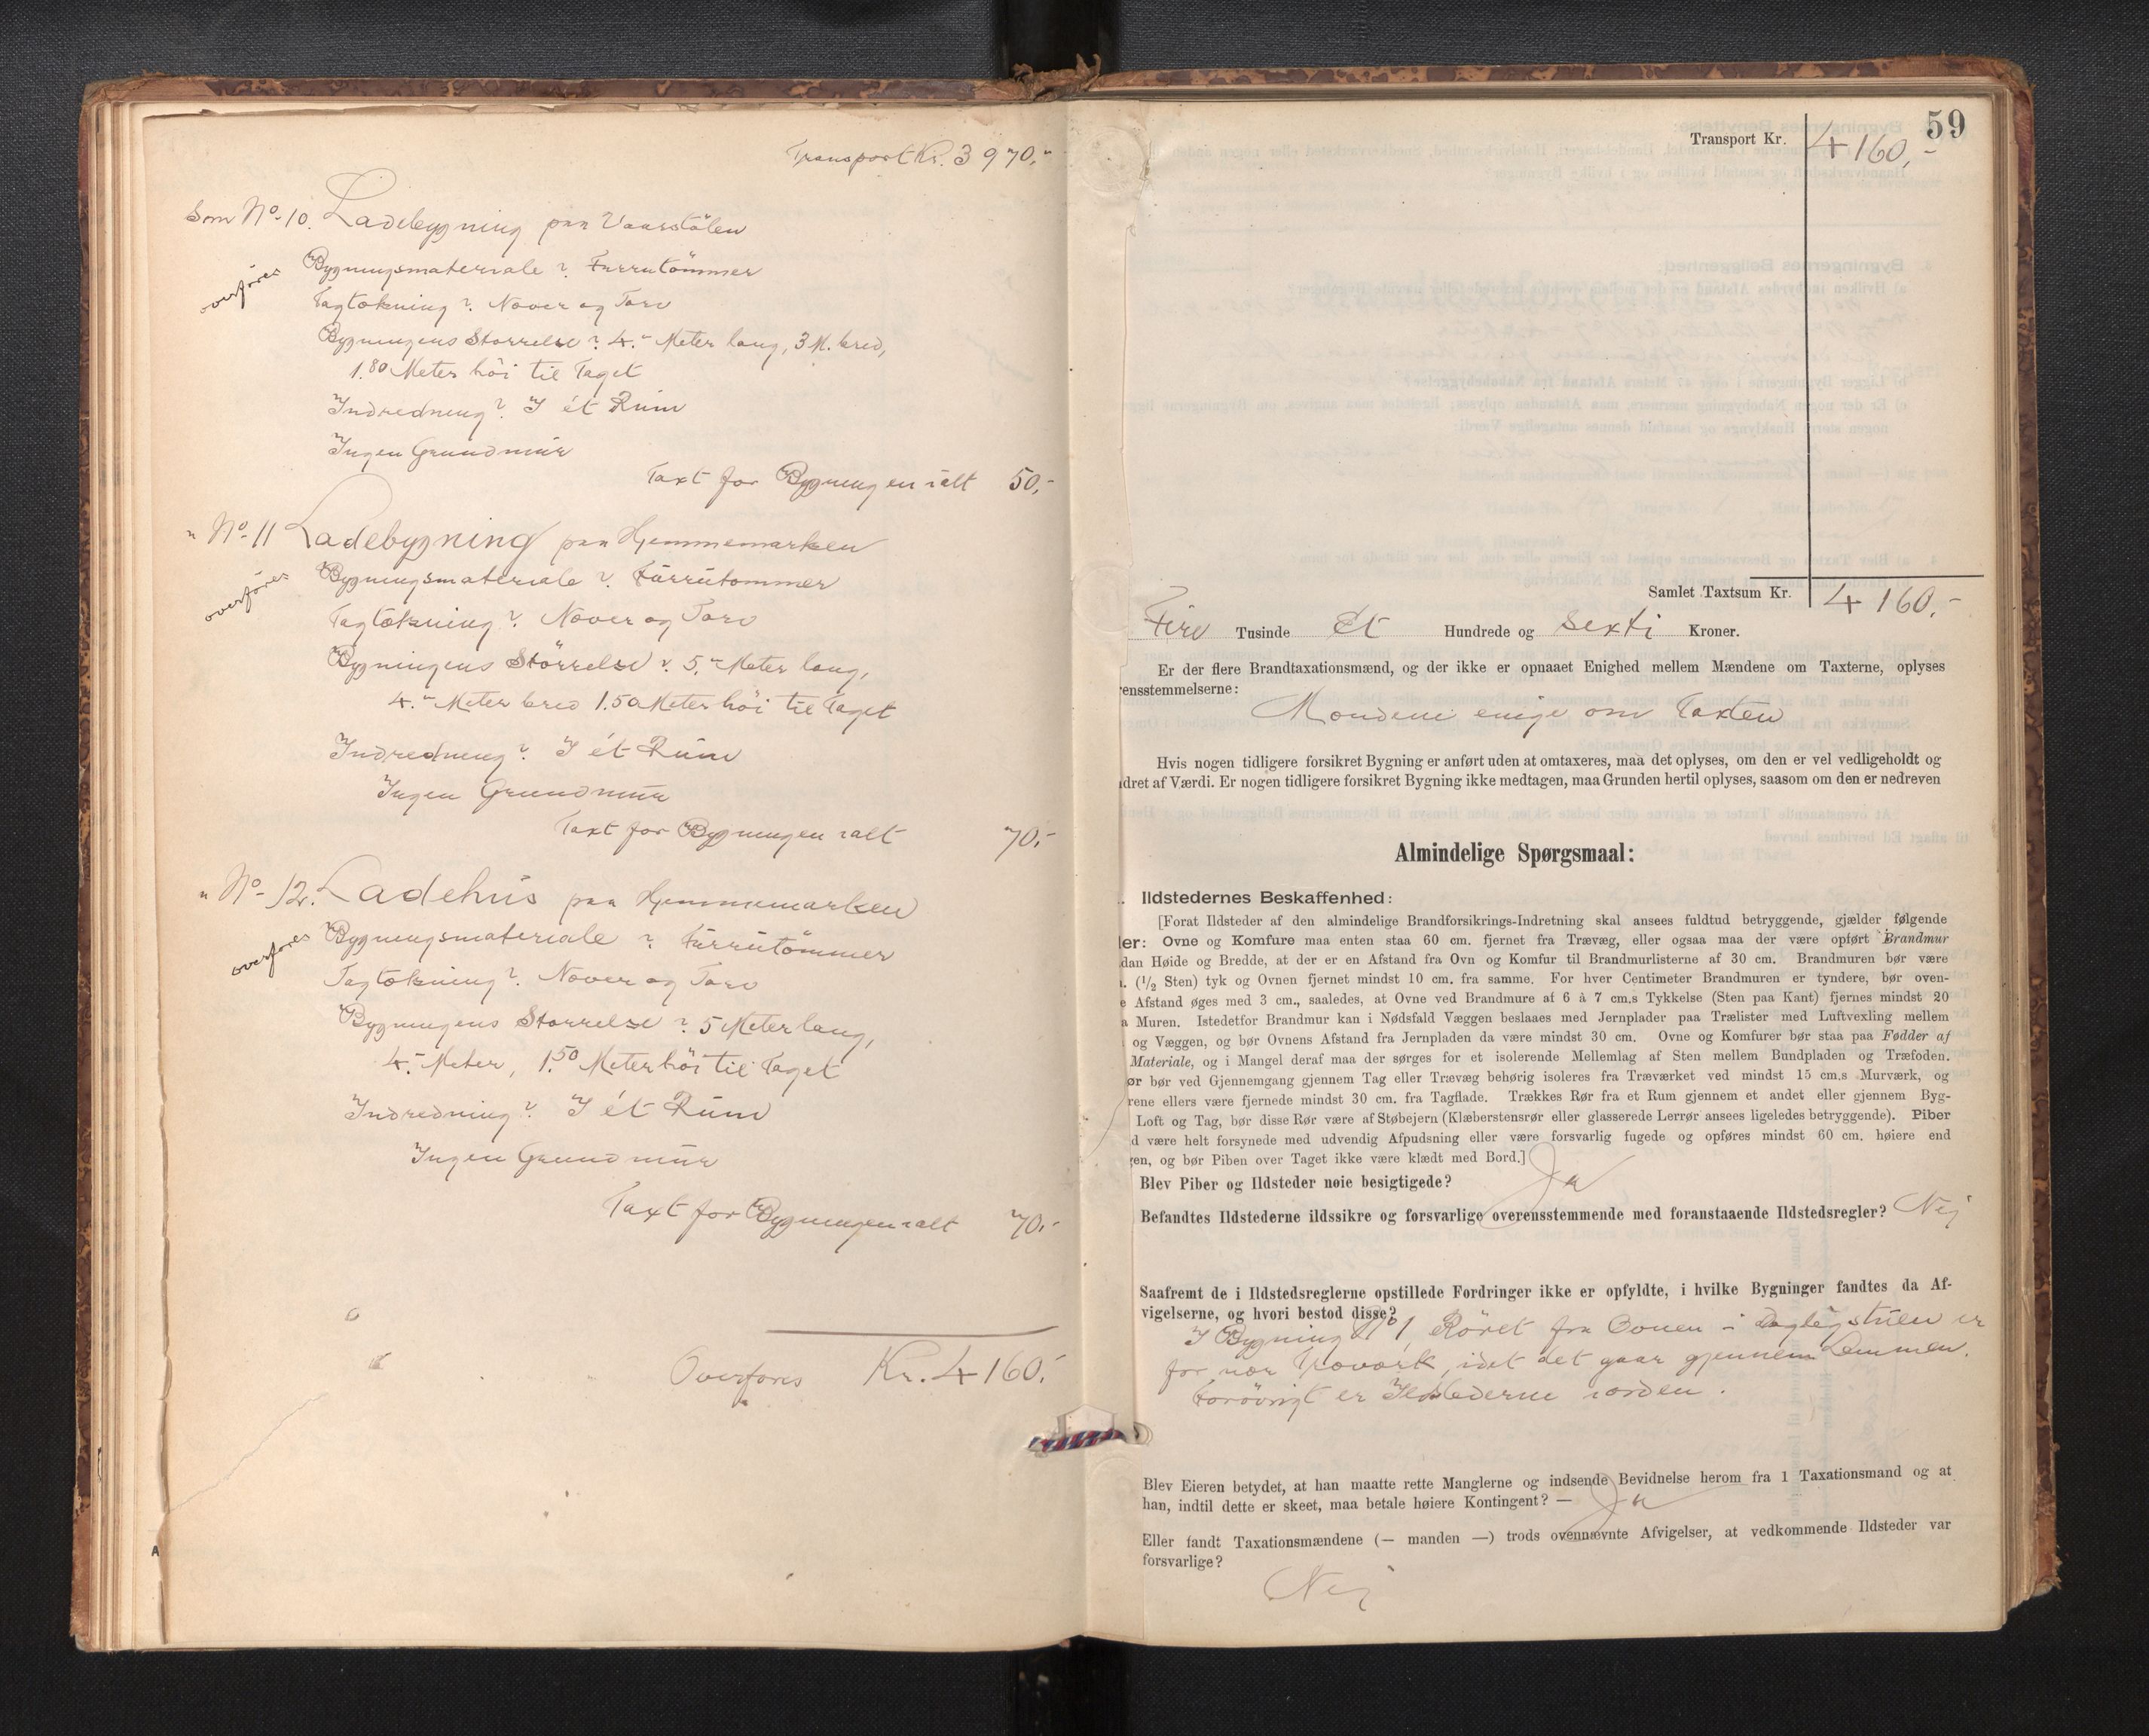 Transport Kr. 3 970,-
Som No 10. Ladebygning paa Vaarstölen
overføres
Bygningsmateriale? Furrutömmer
Tagtækning? Næver og Torv
Bygningens Størrelse? 4.- Meter lang, 3 M. bred,
1.80 Meter höi til Taget
Indredning? I ét Rum
Ingen Grundmur
Taxt for Bygningen ialt 50,-
" No 11 Ladebygning paa Hjemmemarken
overføres
Bygningsmateriale? Furrutömmer
Tagtækning? Næver og Torv
Bygningens Störrelse? 5.- Meter lang,
4.- Meter bred 1.50 Meter höi til Taget
Indredning? I ét Rum
Ingen Grundmur
Taxt for Bygningen ialt 70,-
" No 12. Ladehus paa Hjemmemarken
overføres
Bygningsmateriale? Furrutömmer
Tagtækning? Næver og Torv
Bygningens Størrelse? 5 Meter lang,
4.- Meter, 1.50 Meter höi til Taget
Indredning? I ét Rum
Ingen Grundmur
Taxt for Bygningen ialt 70,-
Overføres Kr. 4 160,-
59
Transport Kr. 4 160,-
Samlet Taxtsum Kr. 4 160,-
Fire Tusinde Et Hundrede og Sexti Kroner.
Er der flere Brandtaxationsmænd, og der ikke er opnaaet Enighed mellem Mændene om Taxterne, oplyses
ensstemmelserne:
Mændene enige om Taxten
Hvis nogen tidligere forsikret Bygning er anført uden at omtaxeres, maa det oplyses, om den er vel vedligeholdt og
dret af Værdi. Er nogen tidligere forsikret Bygning ikke medtagen, maa Grunden hertil oplyses, saasom om den er nedreven
Almindelige Spørgsmaal:
. Ildstedernes Beskaffenhed:
[Forat Ildsteder af den almindelige Brandforsikrings-Indretning skal ansees fuldtud betryggende, gjælder følgende
er: Ovne og Komfure maa enten staa 60 cm. fjernet fra Trævæg, eller ogsaa maa der være opført Brandmur
dan Høide og Bredde, at der er en Afstand fra Ovn og Komfur til Brandmurlisterne af 30 cm. Brandmuren bør være
. (1/2 Sten) tyk og Ovnen fjernet mindst 10 cm. fra samme. For hver Centimeter Brandmuren er tyndere, bør oven-
e Afstand øges med 3 cm., saaledes, at Ovne ved Brandmure af 6 à 7 cm.s Tykkelse (Sten paa Kant) fjernes mindst 20
a Muren. Istedetfor Brandmur kan i Nødsfald Væggen beslaaes med Jernplader paa Trælister med Luftvexling mellem
og Væggen, og bør Ovnens Afstand fra Jernpladen da være mindst 30 cm. Ovne og Komfurer bør staa paa Fødder af
Materiale, og i Mangel deraf maa der sørges for et isolerende Mellemlag af Sten mellem Bundpladen og Træfoden.
ør bør ved Gjennemgang gjennem Tag eller Trævæg behørig isoleres fra Træværket ved mindst 15 cm.s Murværk, og
rene ellers være fjernede mindst 30 cm. fra Tagflade. Trækkes Rør fra et Rum gjennem et andet eller gjennem Byg-
Loft og Tag, bør disse Rør være af Støbejern (Klæberstensrør eller glasserede Lerrør ansees ligeledes betryggende). Piber
d være helt forsynede med udvendig Afpudsning eller være forsvarlig fugede og opføres mindst 60 cm. høiere end
en, og bør Piben over Taget ikke være klædt med Bord.]
Blev Piber og Ildsteder nøie besigtigede? Ja
Befandtes Ildstederne ildssikre og forsvarlige overensstemmende med foranstaaende Ildstedsregler? Nej
Saafremt de i Ildstedsreglerne opstillede Fordringer ikke er opfyldte, i hvilke Bygninger fandtes da Af-
vigelserne, og hvori bestod disse?
I Bygning No 1 Röret fra Ovnen i Dagligstuen er
for nær Træværk, idet det gaar gjennem Lemmen.
Forövrigt er Ildstederne iorden.
Blev Eieren betydet, at han maatte rette Manglerne og indsende Bevidnelse herom fra 1 Taxationsmand og at
han, indtil dette er skeet, maa betale høiere Kontingent? — Ja
Eller fandt Taxationsmændene (— manden —) trods ovennævnte Afvigelser, at vedkommende Ildsteder var
forsvarlige?
Nej